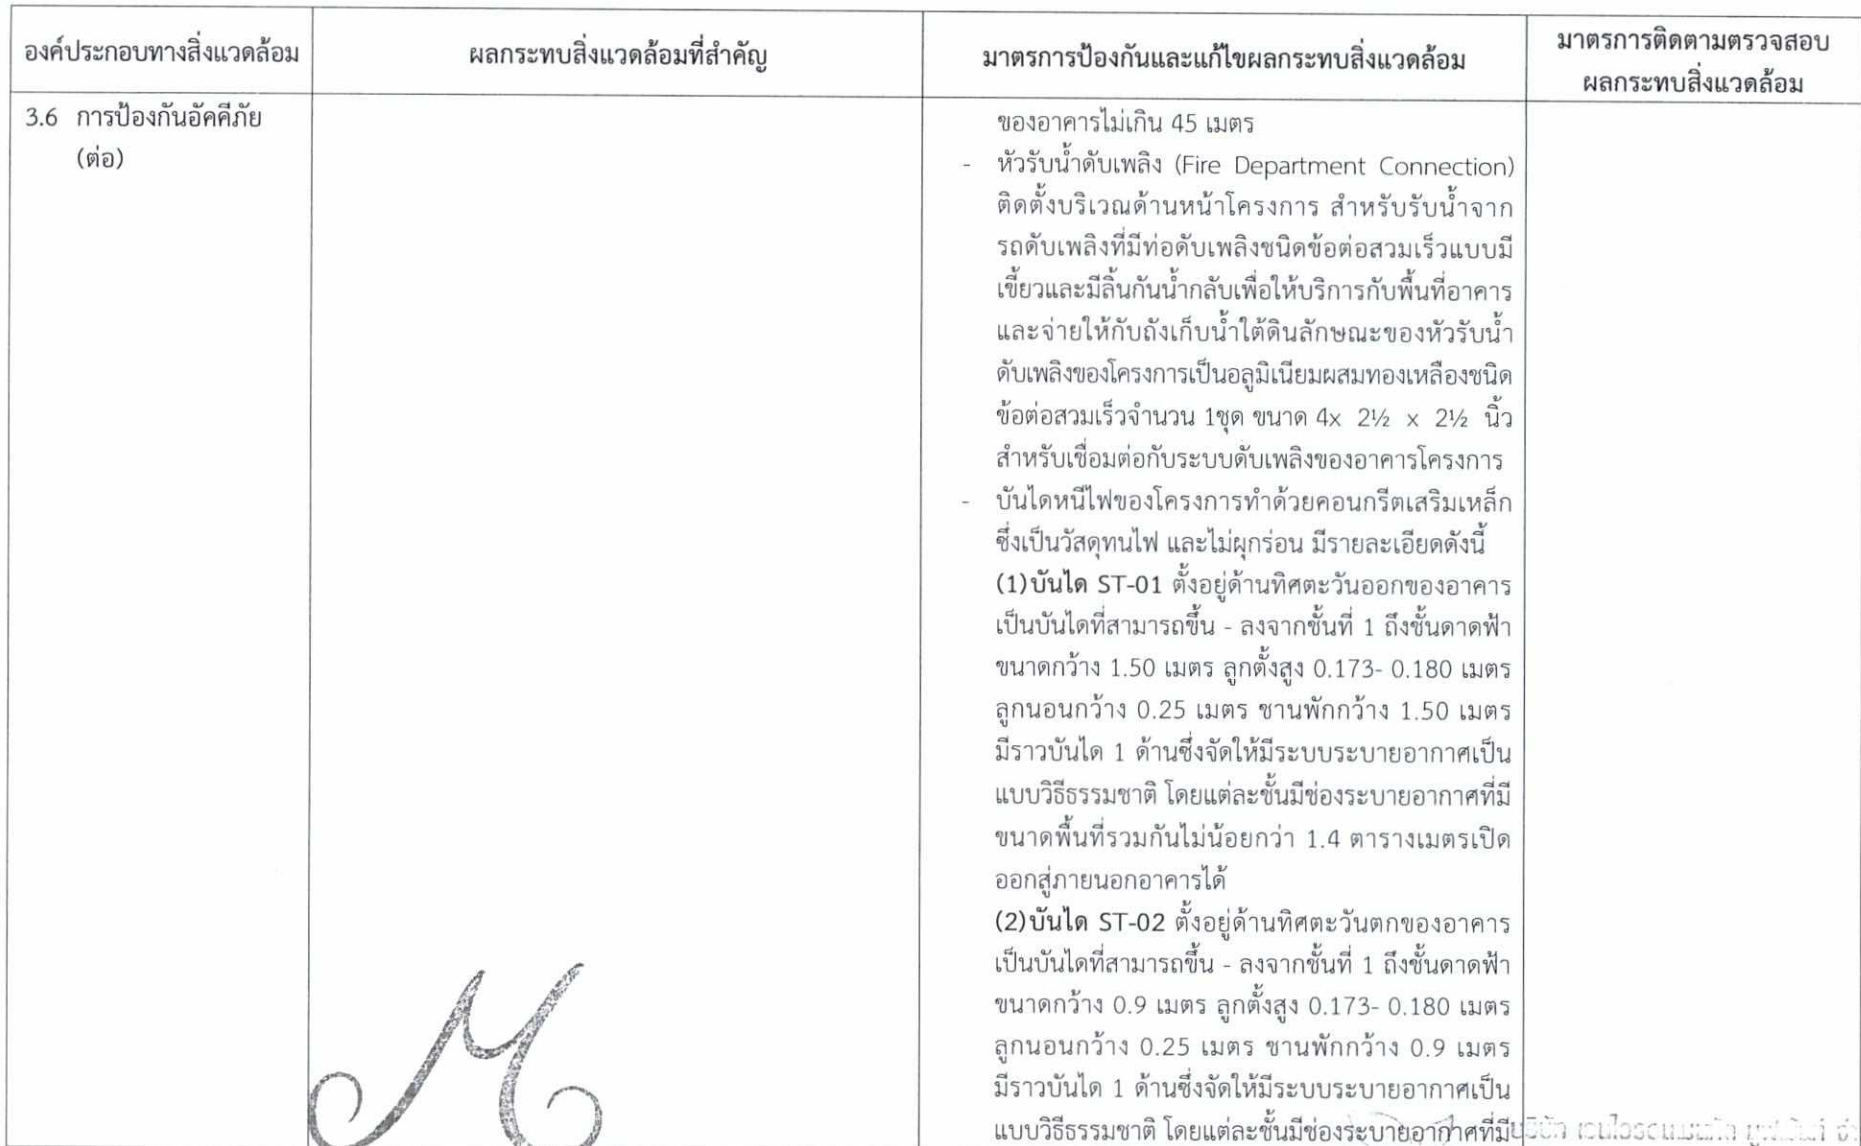 องค์ประกอบทางสิ่งแวดล้อม
ผลกระทบสิ่งแวดล้อมที่สำคัญ
มาตรการป้องกันและแก้ไขผลกระทบสิ่งแวดล้อม
มาตรการติดตามตรวจสอบ
ผลกระทบสิ่งแวดล้อม
3.6 การป้องกันอัคคีภัย
(ต่อ)
ของอาคารไม่เกิน 45 เมตร
- หัวรับน้ำดับเพลิง (Fire Department Connection)
ติดตั้งบริเวณด้านหน้าโครงการ สำหรับรับน้ำจาก
รถดับเพลิงที่มีท่อดับเพลิงชนิดข้อต่อสวมเร็วแบบมี
เขี้ยวและมีลิ้นกันน้ำกลับเพื่อให้บริการกับพื้นที่อาคาร
และจ่ายให้กับถังเก็บน้ำใต้ดินลักษณะของหัวรับน้ำ
ดับเพลิงของโครงการเป็นอลูมิเนียมผสมทองเหลืองชนิด
ข้อต่อสวมเร็วจำนวน 1ชุด ขนาด 4x 2½ x 2½ นิ้ว
สำหรับเชื่อมต่อกับระบบดับเพลิงของอาคารโครงการ
- บันไดหนีไฟของโครงการทำด้วยคอนกรีตเสริมเหล็ก
ซึ่งเป็นวัสดุทนไฟ และไม่ผุกร่อน มีรายละเอียดดังนี้
(1)บันได ST-01 ตั้งอยู่ด้านทิศตะวันออกของอาคาร
เป็นบันไดที่สามารถขึ้น - ลงจากชั้นที่ 1 ถึงชั้นดาดฟ้า
ขนาดกว้าง 1.50 เมตร ลูกตั้งสูง 0.173- 0.180 เมตร
ลูกนอนกว้าง 0.25 เมตร ชานพักกว้าง 1.50 เมตร
มีราวบันได 1 ด้านซึ่งจัดให้มีระบบระบายอากาศเป็น
แบบวิธีธรรมชาติ โดยแต่ละชั้นมีช่องระบายอากาศที่มี
ขนาดพื้นที่รวมกันไม่น้อยกว่า 1.4 ตารางเมตรเปิด
ออกสู่ภายนอกอาคารได้
(2)บันได ST-02 ตั้งอยู่ด้านทิศตะวันตกของอาคาร
เป็นบันไดที่สามารถขึ้น - ลงจากชั้นที่ 1 ถึงชั้นดาดฟ้า
ขนาดกว้าง 0.9 เมตร ลูกตั้งสูง 0.173- 0.180 เมตร
ลูกนอนกว้าง 0.25 เมตร ชานพักกว้าง 0.9 เมตร
มีราวบันได 1 ด้านซึ่งจัดให้มีระบบระบายอากาศเป็น
แบบวิธีธรรมชาติ โดยแต่ละชั้นมีช่องระบายอากาศที่มี